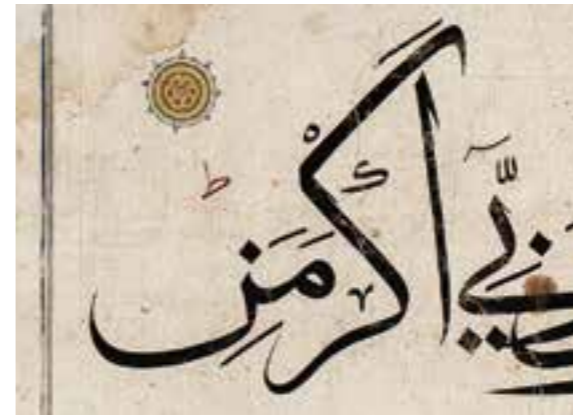 رَبِّيٓ أَكْرَمَنِ ط